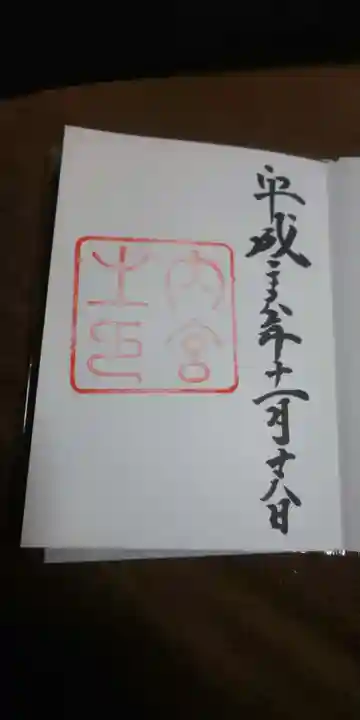 平成二十年十一月十八日
内宮
之印